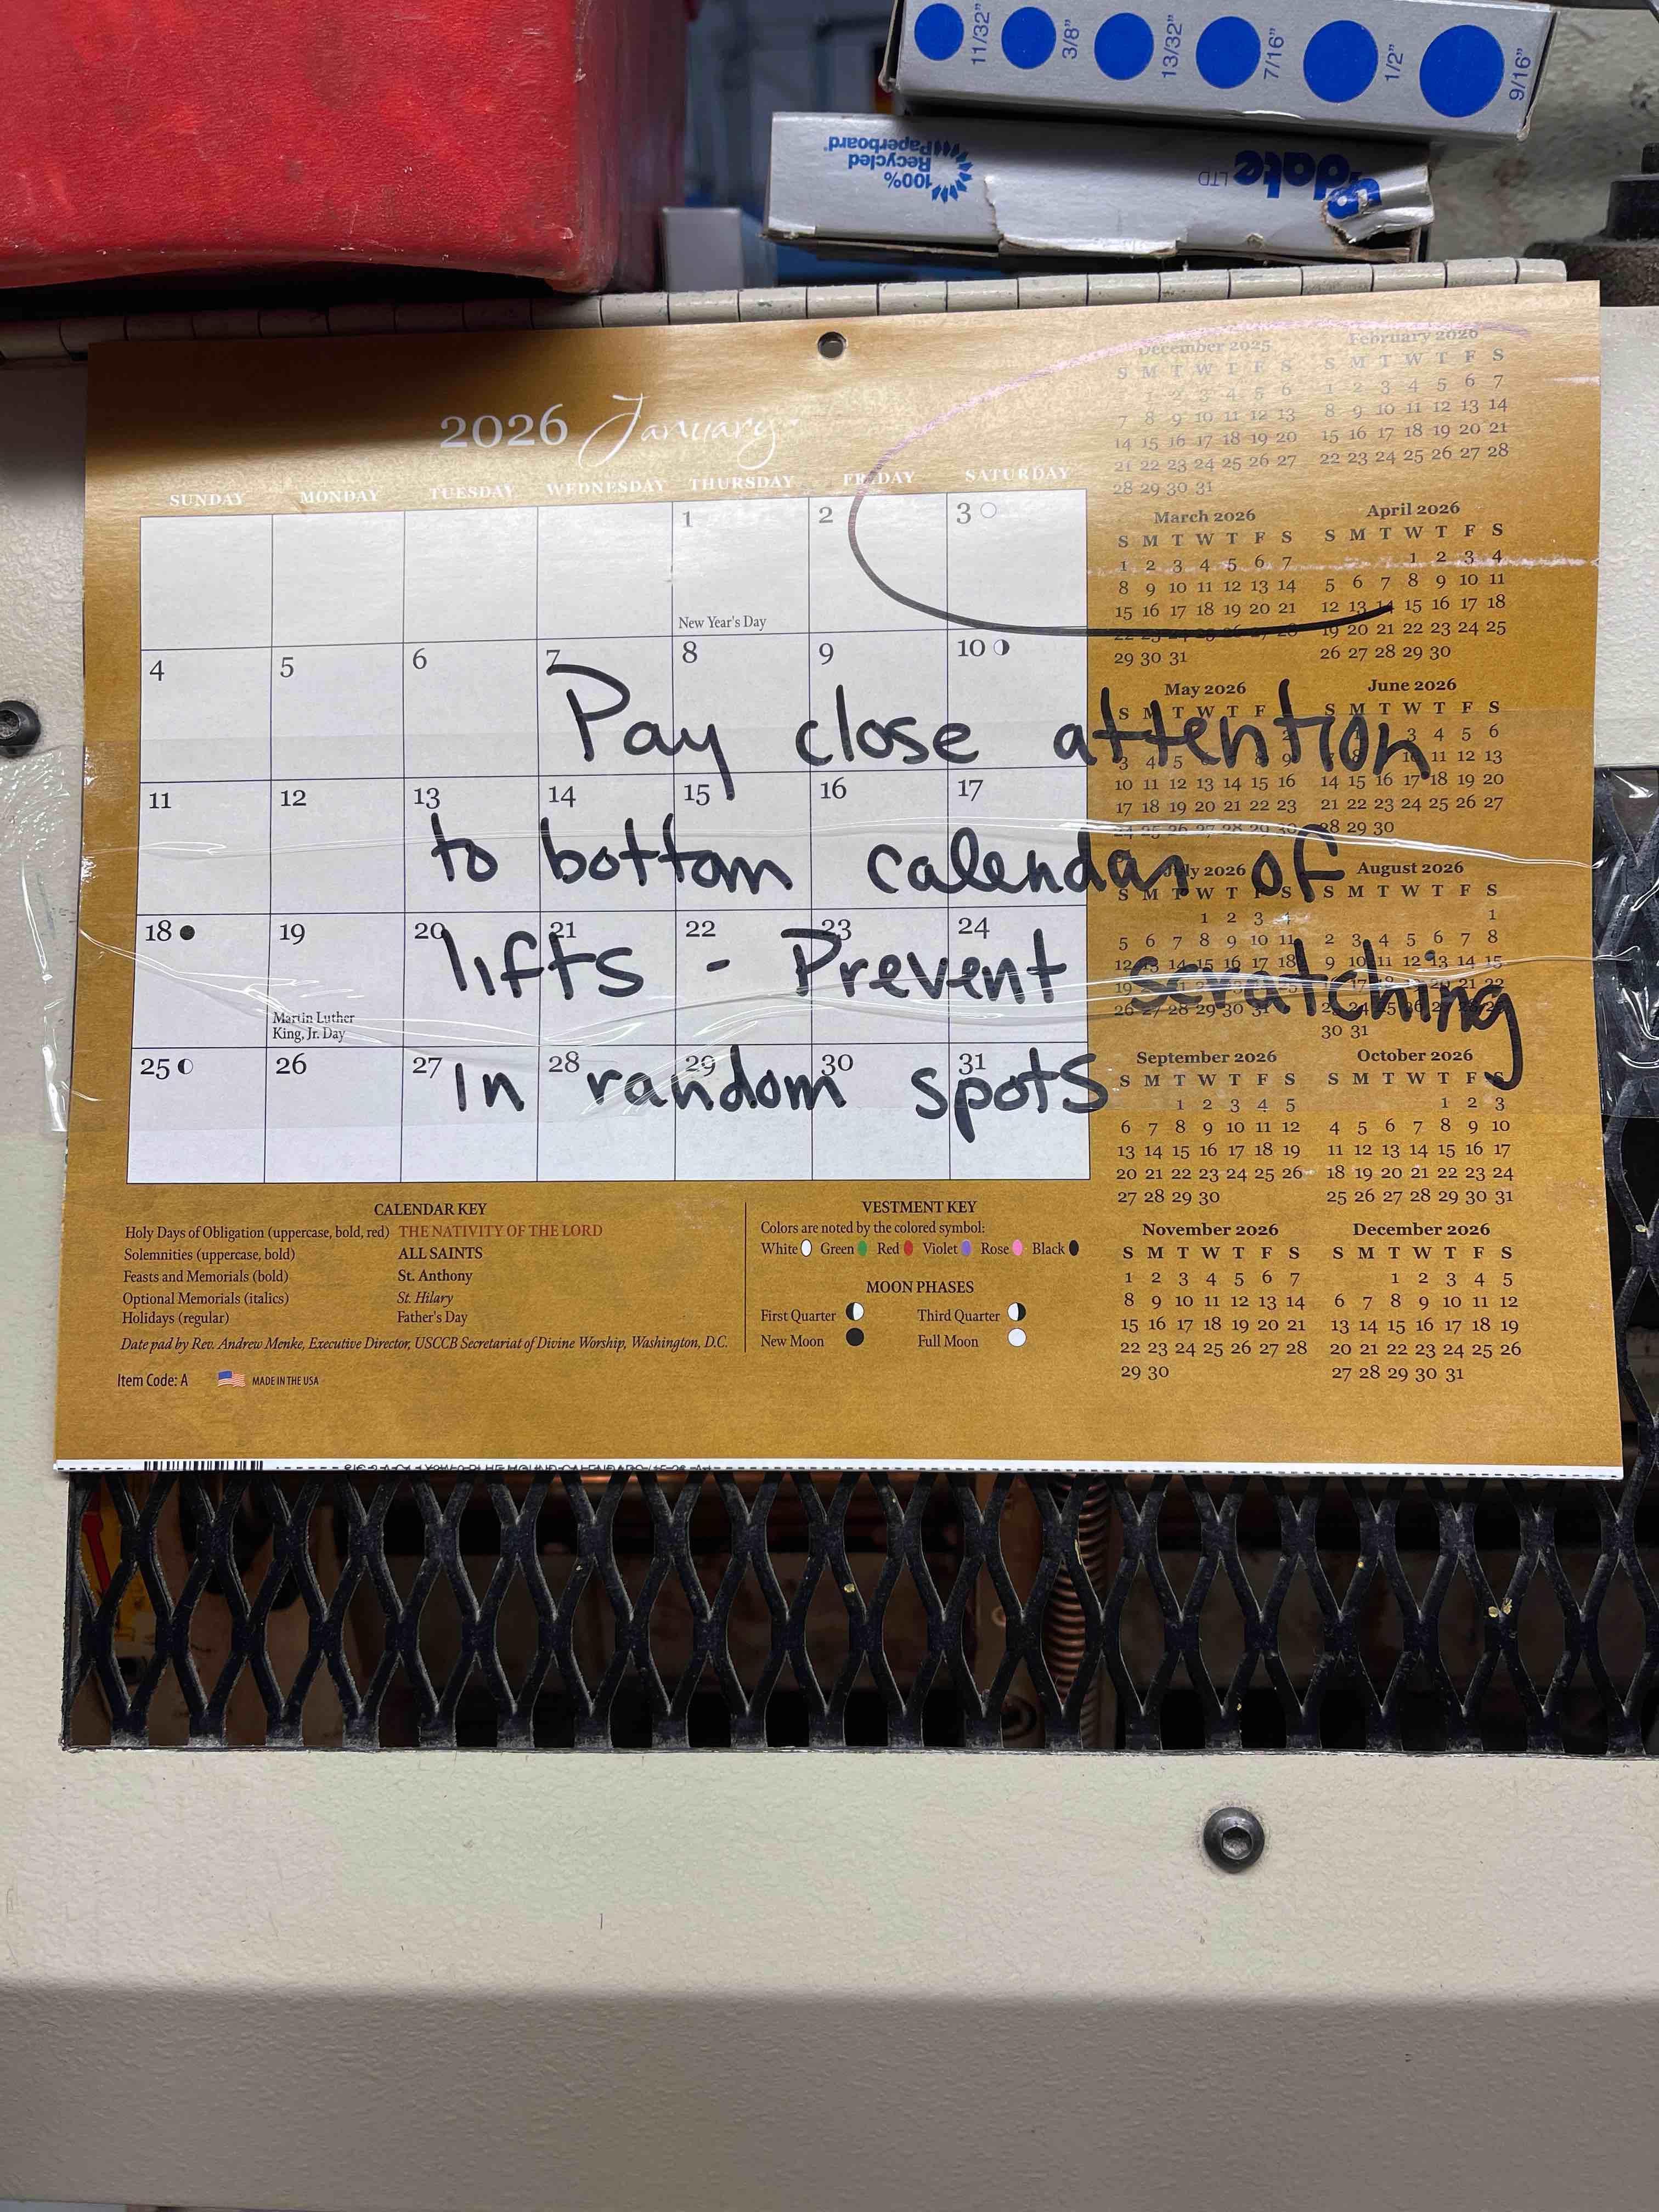 11/32" 3/8" 13/32" 7/16" 1/2" 9/16"
100%
Recycled
Paperboard
date LTD
2026 January
SUNDAY MONDAY TUESDAY WEDNESDAY THURSDAY FRIDAY SATURDAY
1 2 3
New Year's Day
4 5 6 7 8 9 10
11 12 13 14 15 16 17
18 19 20 21 22 23 24
Martin Luther
King, Jr. Day
25 26 27 28 29 30 31
Pay close attention
to bottom calendar of
lifts - Prevent scratching
in random spots
December 2025
S M T W T F S
1 2 3 4 5 6
7 8 9 10 11 12 13
14 15 16 17 18 19 20
21 22 23 24 25 26 27
28 29 30 31
February 2026
S M T W T F S
1 2 3 4 5 6 7
8 9 10 11 12 13 14
15 16 17 18 19 20 21
22 23 24 25 26 27 28
March 2026
S M T W T F S
1 2 3 4 5 6 7
8 9 10 11 12 13 14
15 16 17 18 19 20 21
22 23 24 25 26 27 28
29 30 31
April 2026
S M T W T F S
1 2 3 4
5 6 7 8 9 10 11
12 13 14 15 16 17 18
19 20 21 22 23 24 25
26 27 28 29 30
May 2026
S M T W T F
3 4 5 8 9
10 11 12 13 14 15 16
17 18 19 20 21 22 23
24 25 26 27 28 29 30
June 2026
S M T W T F S
3 4 5 6
10 11 12 13
14 15 16 17 18 19 20
21 22 23 24 25 26 27
28 29 30
July 2026
S M T W T F S
1 2 3 4
5 6 7 8 9 10 11
12 13 14 15 16 17 18
19 21 22
26 27 28 29 30 31
August 2026
S M T W T F S
1
2 3 4 5 6 7 8
9 10 11 12 13 14 15
17 18 20 21 22
23 24 25 26
30 31
September 2026
S M T W T F S
1 2 3 4 5
6 7 8 9 10 11 12
13 14 15 16 17 18 19
20 21 22 23 24 25 26
27 28 29 30
October 2026
S M T W T F S
1 2 3
4 5 6 7 8 9 10
11 12 13 14 15 16 17
18 19 20 21 22 23 24
25 26 27 28 29 30 31
November 2026
S M T W T F S
1 2 3 4 5 6 7
8 9 10 11 12 13 14
15 16 17 18 19 20 21
22 23 24 25 26 27 28
29 30
December 2026
S M T W T F S
1 2 3 4 5
6 7 8 9 10 11 12
13 14 15 16 17 18 19
20 21 22 23 24 25 26
27 28 29 30 31
CALENDAR KEY
Holy Days of Obligation (uppercase, bold, red) THE NATIVITY OF THE LORD
Solemnities (uppercase, bold) ALL SAINTS
Feasts and Memorials (bold) St. Anthony
Optional Memorials (italics) St. Hilary
Holidays (regular) Father's Day
Date pad by Rev. Andrew Menke, Executive Director, USCCB Secretariat of Divine Worship, Washington, D.C.
Item Code: A MADE IN THE USA
VESTMENT KEY
Colors are noted by the colored symbol:
White Green Red Violet Rose Black
MOON PHASES
First Quarter Third Quarter
New Moon Full Moon